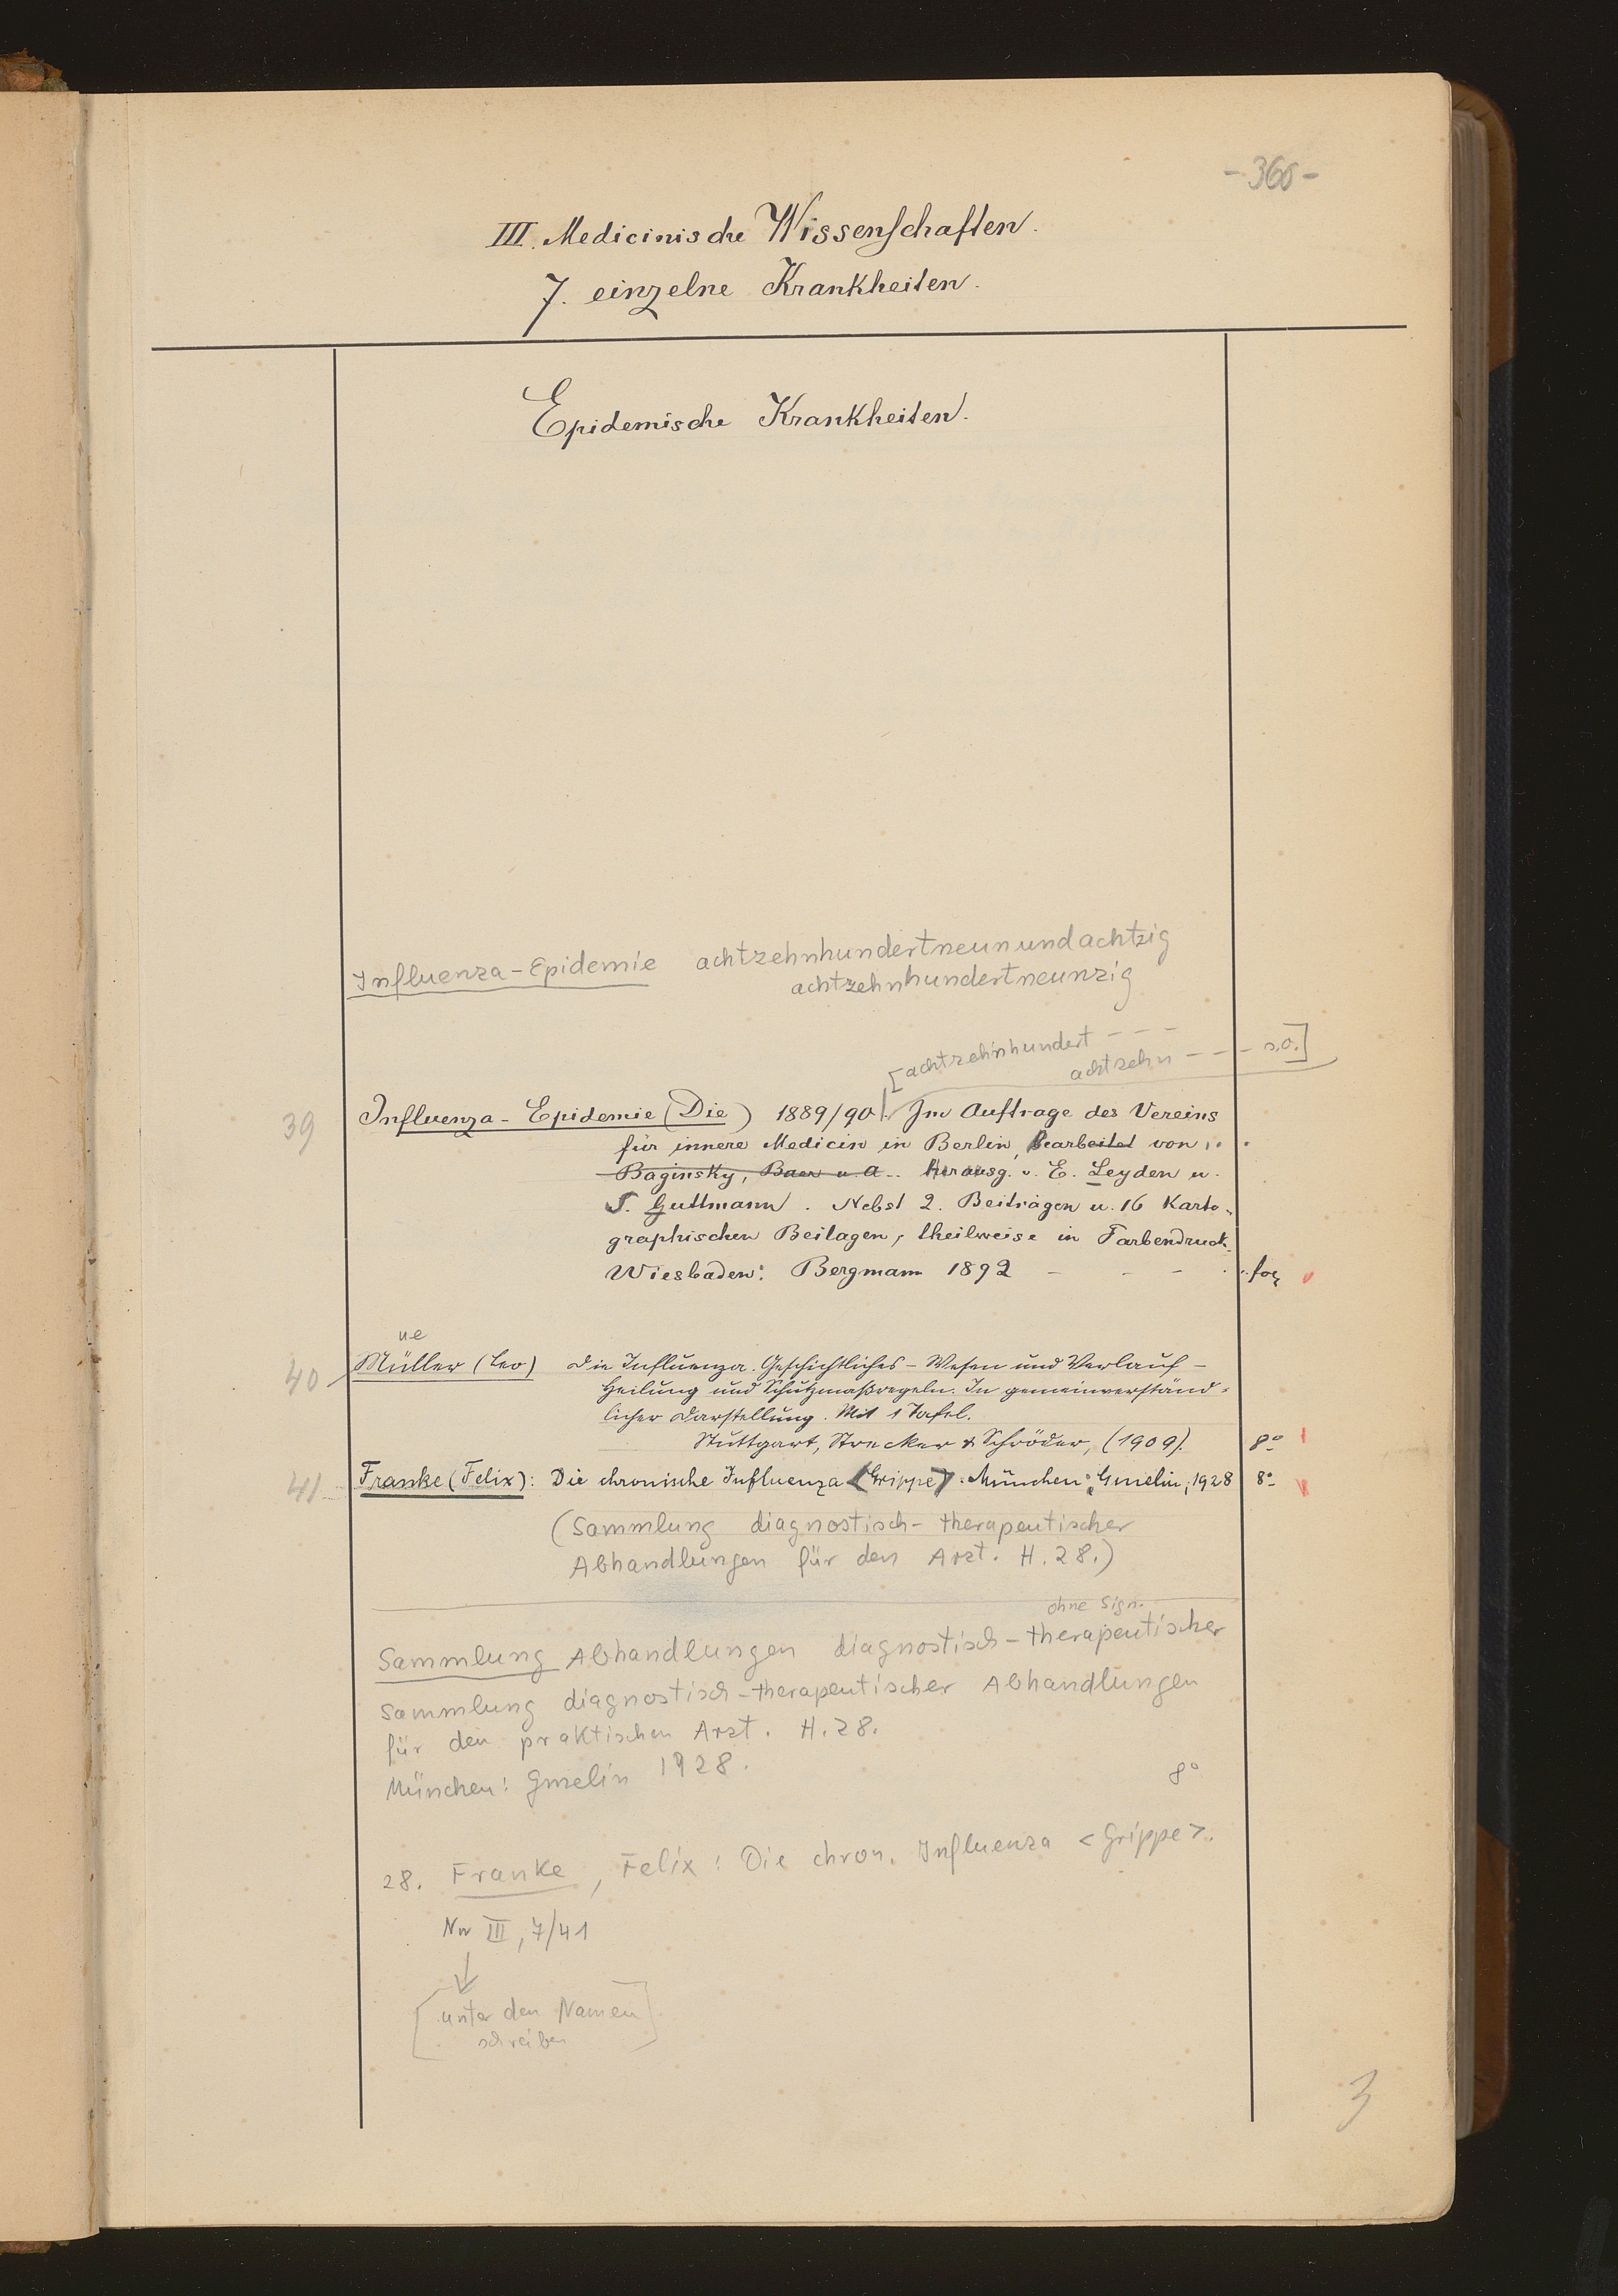 - 365 -
III. Medicinische Wissenschaften.
7. einzelne Krankheiten.
Epidemische Krankheiten.
Influenza-Epidemie achtzehnhundertneunundachtzig
achtzehnhundertneunzig
[achtzehnhundert - - -
achtzehn - - - s.o.]
39 Influenza-Epidemie (Die) 1889/90. Im Auftrage des Vereins
für innere Medicin in Berlin, Bearbeitet von . .
Baginsky, Baer u. A.. Herausg. v. E. Leyden u.
S. Guttmann. Nebst 2. Beiträgen u. 16 Karto-
graphischen Beilagen, theilweise in Farbendruck.
Wiesbaden: Bergmann 1892 - - - fol
ue
40 Müller (Leo) Die Influenza. Geschichtliches - Wesen und Verlauf -
Heilung und Schutzmaßregeln. In gemeinverständ-
licher Darstellung. Mit 1 Tafel.
Stuttgart, Strecker & Schröder, (1909). 8°
41 Franke (Felix): Die chronische Influenza <Grippe>. München: Gmelin, 1928 8°
(Sammlung diagnostisch-therapeutischer
Abhandlungen für den Arzt. H. 28.)
ohne Sign.
Sammlung Abhandlungen diagnostisch-therapeutischer
Sammlung diagnostisch-therapeutischer Abhandlungen
für den praktischen Arzt. H. 28.
München: Gmelin 1928. 8°
28. Franke, Felix: Die chron. Influenza <Grippe>.
Nw III, 7/41
[unter den Namen
schreiben]
3